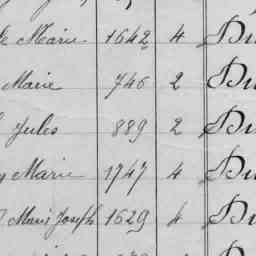 Marie 1642 4 Du
Marie 746 2 Du
Jules 889 2 Du
Marie 1747 4 Du
Marie Joseph 1629 4 Du